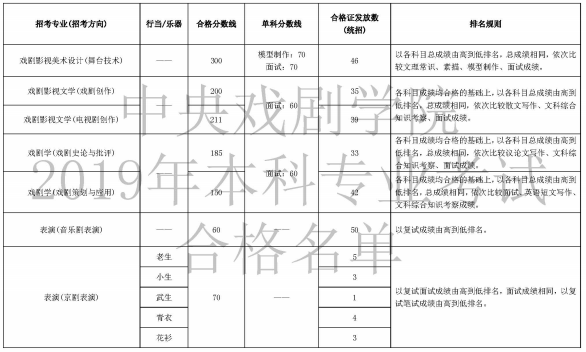 招考专业(招考方向) 行当/乐器 合格分数线 单科分数线 合格证发放数
(统招) 排名规则
戏剧影视美术设计(舞台技术) —— 300 模型制作：70
面试：70 46 以各科目总成绩由高到低排名。总成绩相同，依次比
较文理常识、素描、模型制作、面试成绩。
戏剧影视文学(戏剧创作) —— 200 面试：60 35 各科目成绩均合格的基础上，以各科目总成绩由高到
低排名。总成绩相同，依次比较散文写作、文科综合
知识考察、面试成绩。
戏剧影视文学(电视剧创作) —— 211 39
戏剧学(戏剧史论与批评) —— 185 面试：60 33 各科目成绩均合格的基础上，以各科目总成绩由高到
低排名。总成绩相同，依次比较议论文写作、文科综
合知识考察、面试成绩。
戏剧学(戏剧策划与应用) —— 150 42 各科目成绩均合格的基础上，以各科目总成绩由高到
低排名。总成绩相同，依次比较面试、英语短文写作、
文科综合知识考察成绩。
表演(音乐剧表演) —— 60 —— 50 以复试成绩由高到低排名。
表演(京剧表演) 老生 70 —— 5 以复试面试成绩由高到低排名。面试成绩相同，以复
试笔试成绩由高到低排名。
小生 3
武生 1
青衣 4
花衫 3
中央戏剧学院
2019年本科专业考试
合格名单